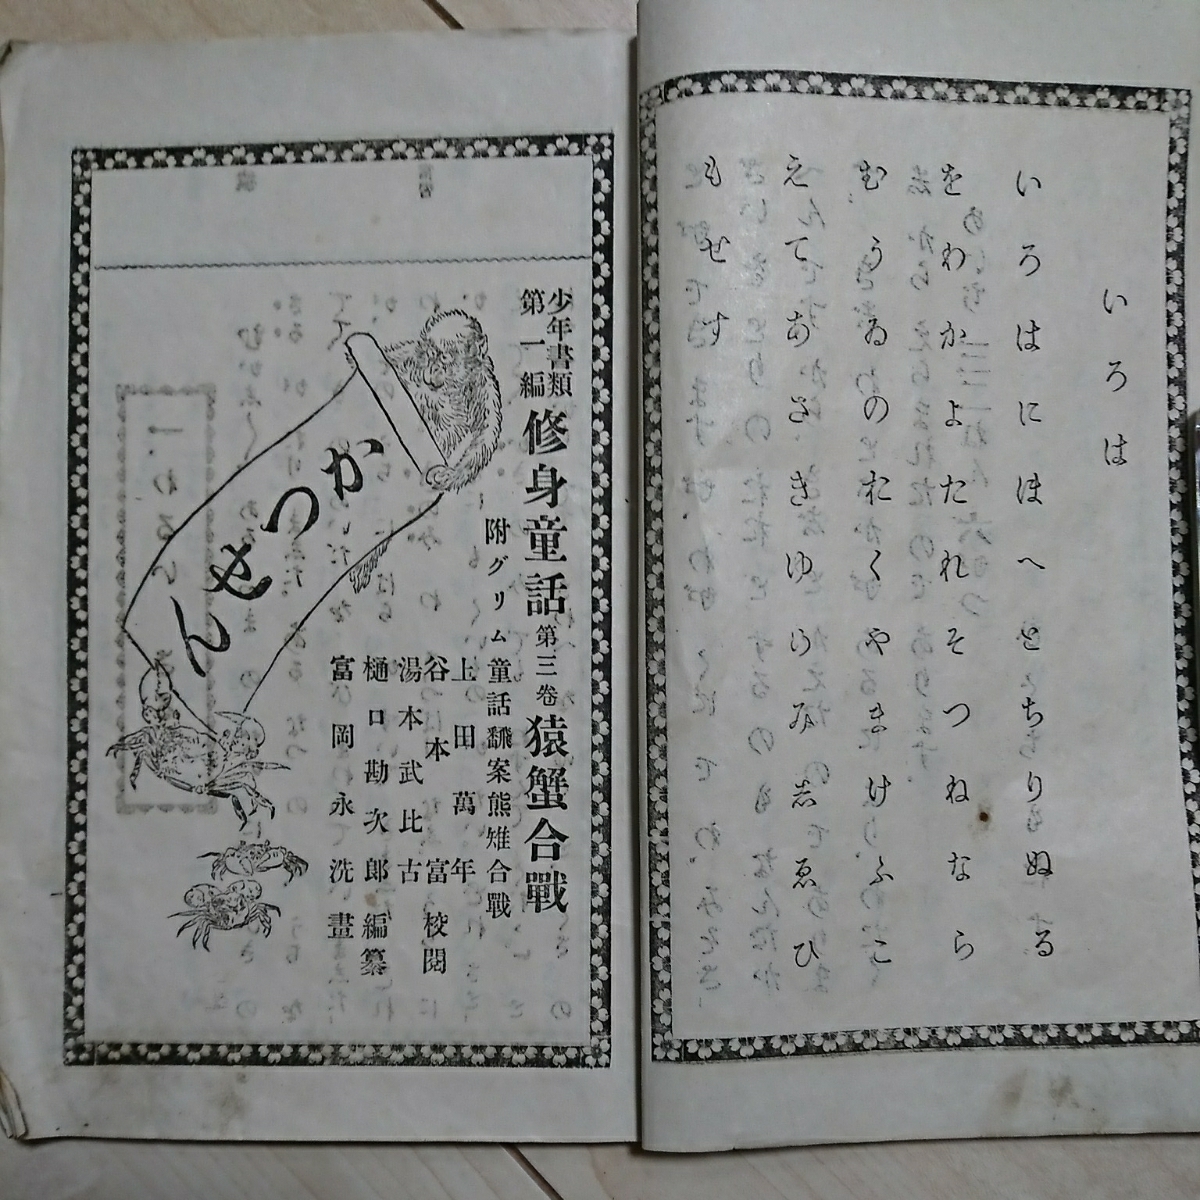 いろは
いろはにほへとちりぬる
をわかよたれそつねなら
むうゐのおくやまけふこ
えてあさきゆめみ志ゑひ
もせす
少年書類
第一編
修身童話 第三卷 猿蟹合戰
附グリム童話飜案熊雉合戰
上田萬年
谷本富 校閲
湯本武比古
樋口勘次郎編纂
富岡永洗畫
かつせん